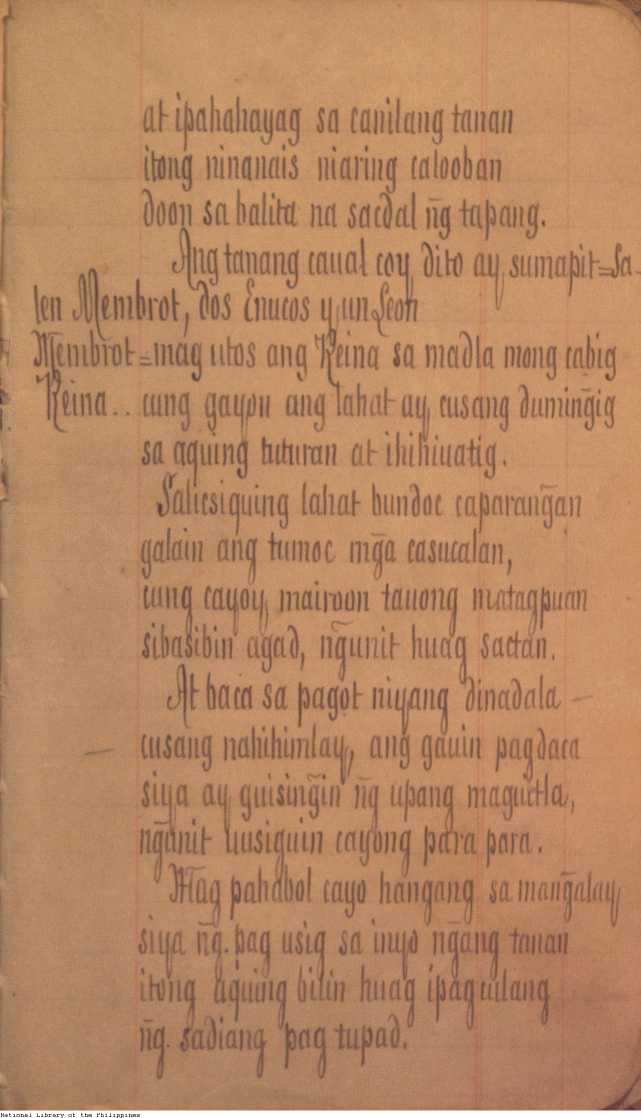 at ipahahayag sa canilang tanan
itong ninanais niaring calooban
doon sa balita na sacdal ñg tapang.
Ang tanang caual coy dito ay sumapit=Sa-
len Membrot, dos Enucos y un Leon
Membrot=mag utos ang Reina sa madla mong cabig
Reina.. cung gayon ang lahat ay cusang duming̃ig
sa aquing tuturan at ihihiuatig.
Salicsiquing lahat bundoc caparang̃an
galain ang tumoc mg̃a casucalan,
cung cayoy mairoon tauong matagpuan
sibasibin agad, ng̃unit huag sactan.
At baca sa pagot niyang dinadala -
cusang nahihimlay, ang gauin pagdaca
siya ay guising̃in ñg upang magüctla,
ng̃unit uusiguin cayong para para.
Mag pahabol cayo hangang sa mang̃alay
siya ñg. pag usig sa inyo ng̃ang tanan
itong aquing bilin huag ipagculang
ñg. sadiang pag tupad.
National Library of the Philippines